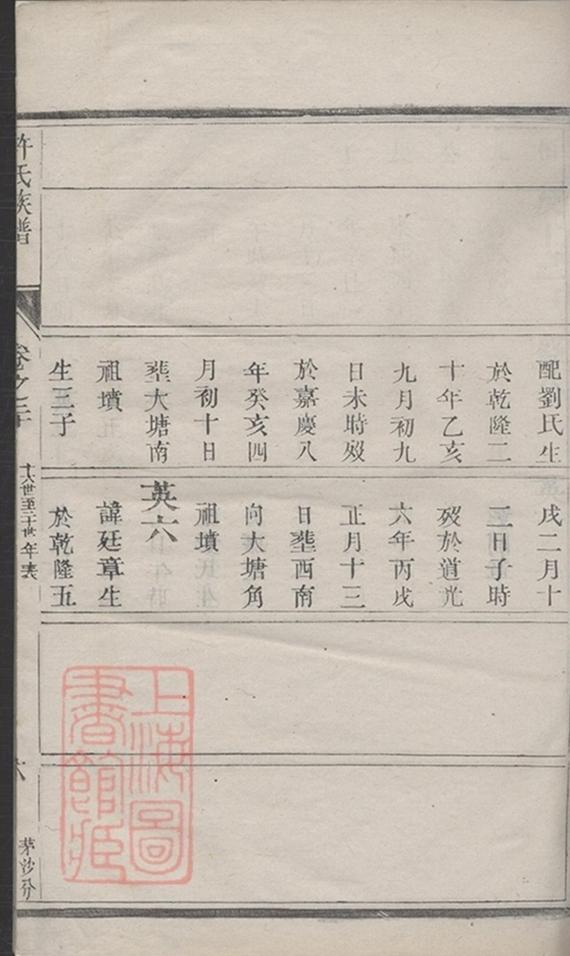 配劉氏生
於乾隆二
十年乙亥
九月初九
日未時歿
於嘉慶八
年癸亥四
月初十日
塟大塘南
祖墳
生三子
戌二月十
二日子時
歿於道光
六年丙戌
正月十三
日塟西南
向大塘角
祖墳
英六
諱廷章生
於乾隆五
許氏族譜
卷之二十
十八世至二十世年表
六
茅沙分
上海圖
書館藏